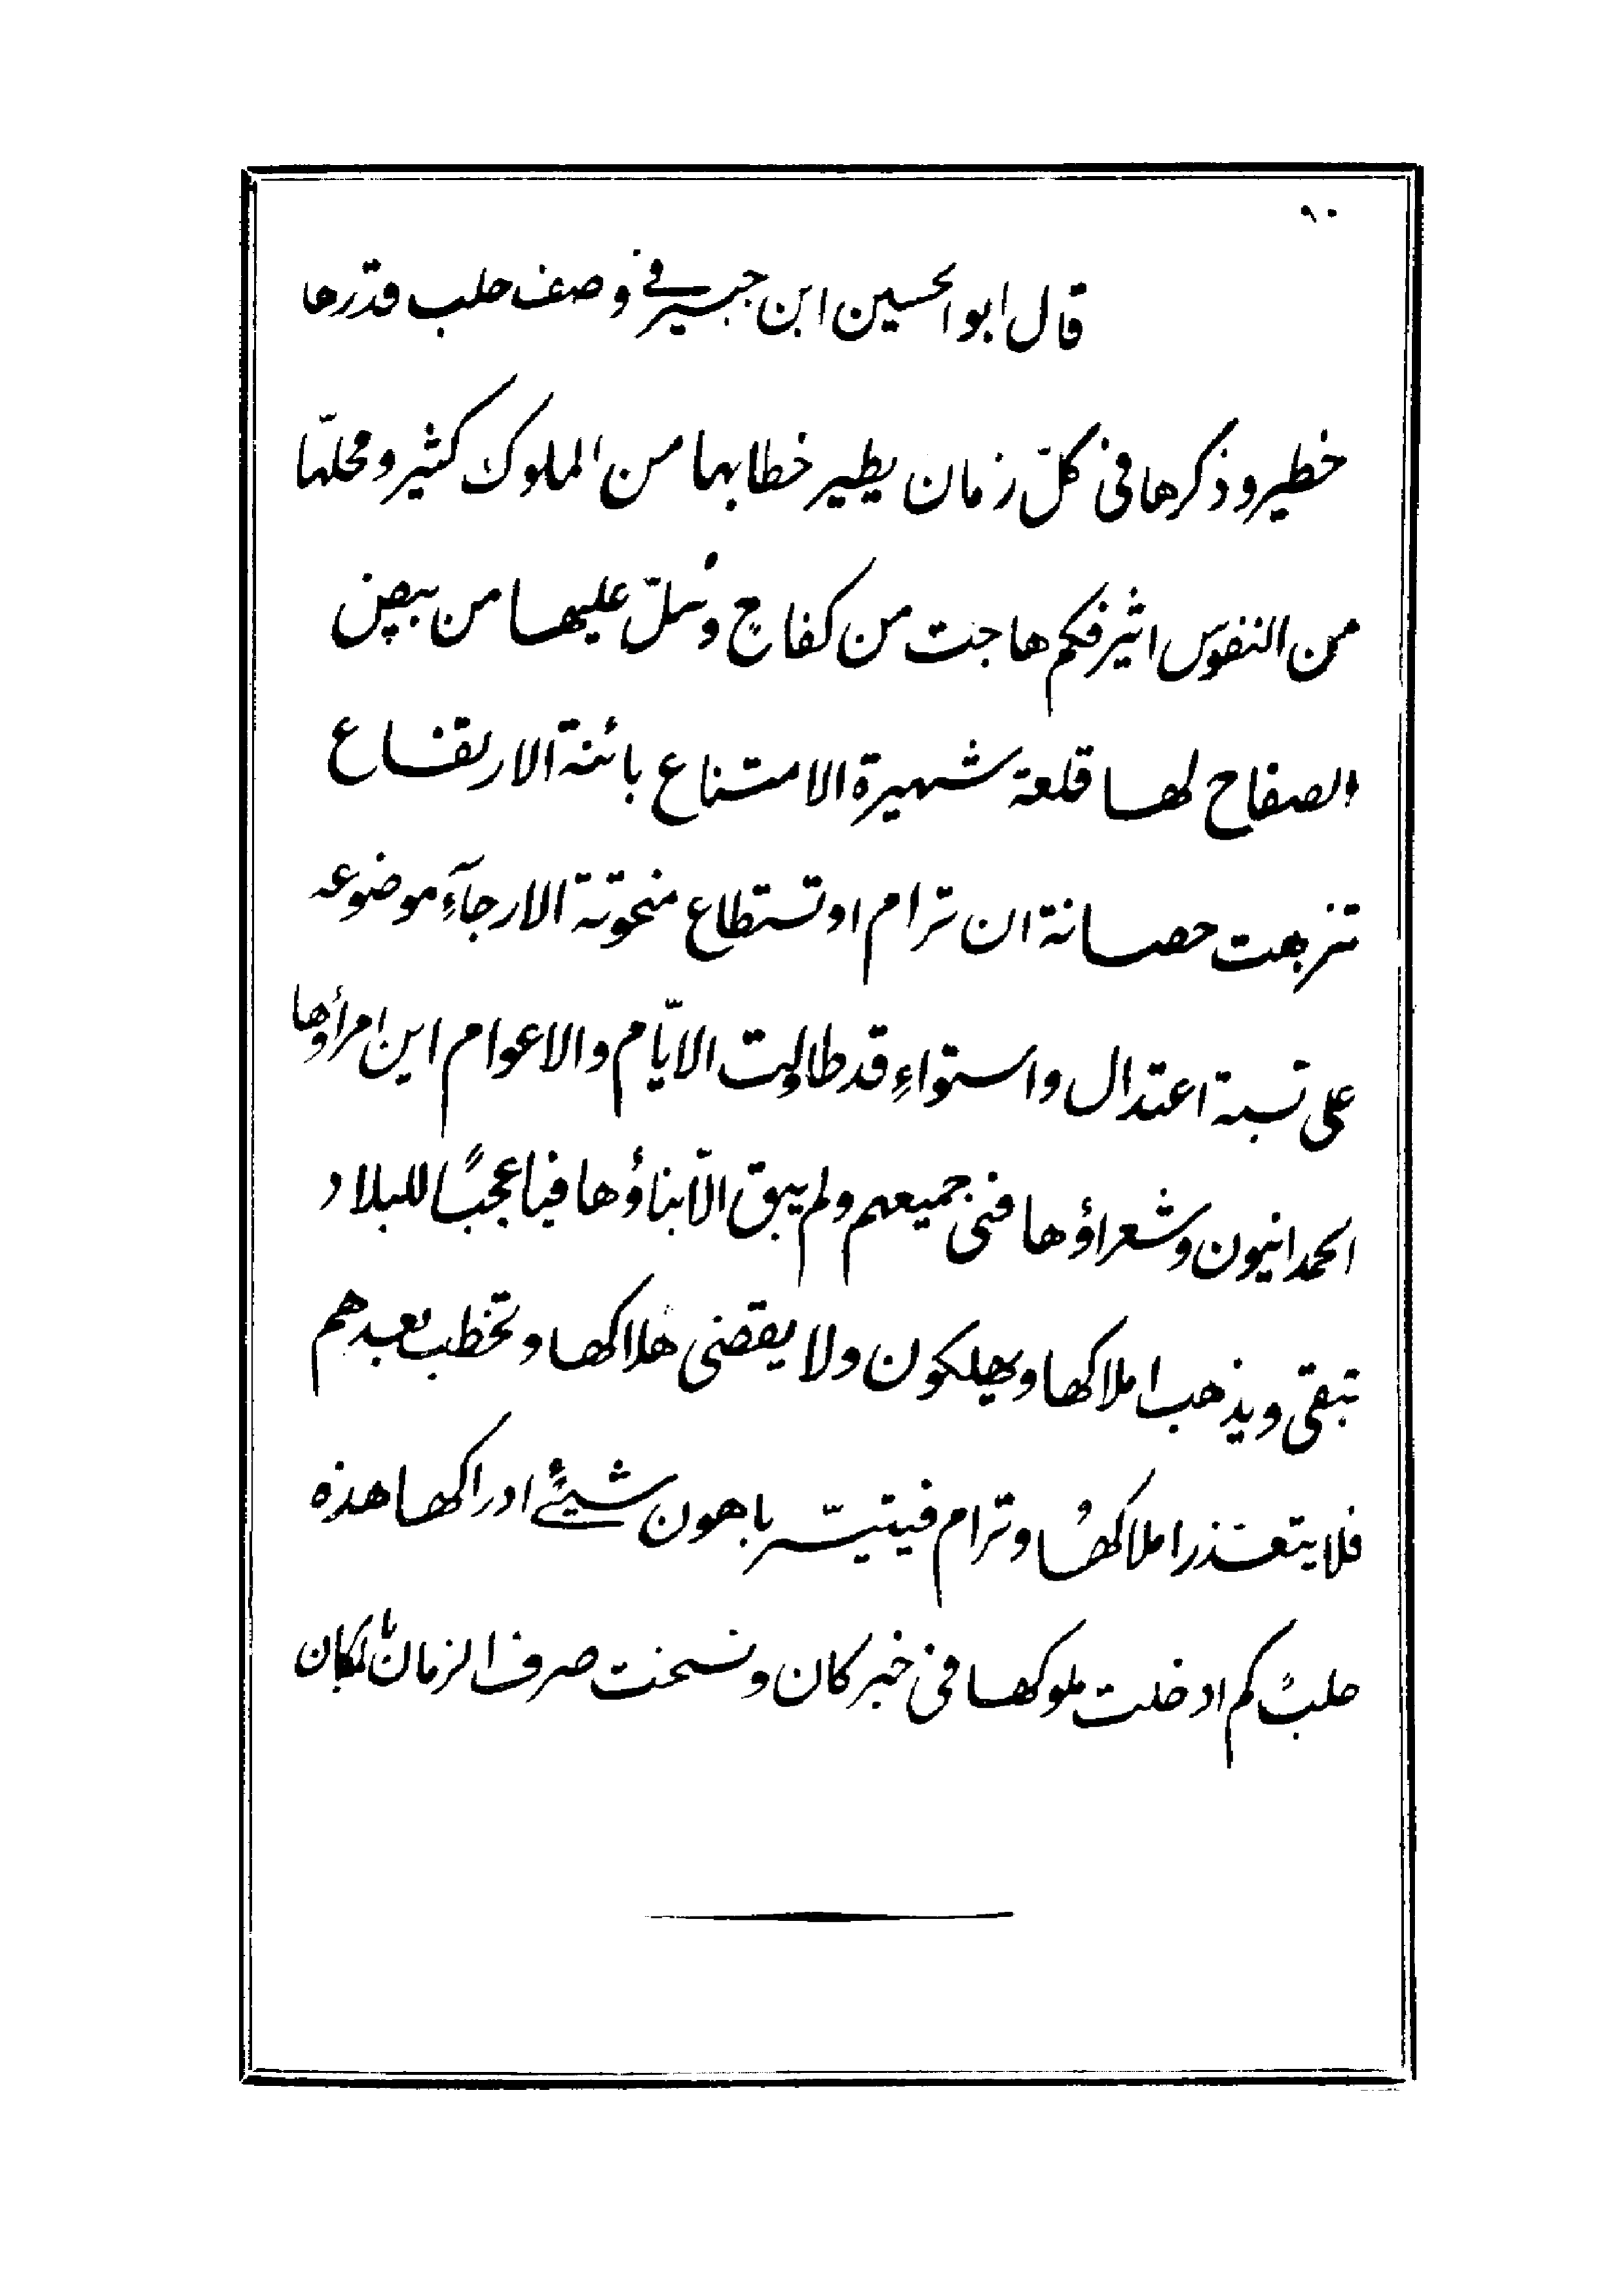 ٩٠
قال ابو الحسين ابن جبير في وصف حلب قدرها
خطير وذكرها في كلّ زمان يطير خطابها من الملوك كثير ومحلّها
من النفوس اثير فكم هاجت من كفاح وسلّ عليها من بيض
الصفاح لها قلعة شهيرة الامتناع بائنة الارتفاع
تنزهت حصانة ان ترام او تستطاع منحوتة الارجآءِ موضوعه
على نسبة اعتدال واستواءِ قد طاولت الايّام والاعوام اين امرأوها
الحمدانيون وشعراؤها فنى جميعهم ولم يبق الّا بناؤها فيا عجبًا للبلاد
تبقى ويذهب املاكها ويهلكون ولا يقضى هلاكها وتخطب بعدهم
فلا يتعذر املاكها وترام فيتيسّر باهون شيئٍ ادراكها هذه
حلب كم ادخلت ملوكها في خبر كان ونسخت صرف الزمان بالمكان